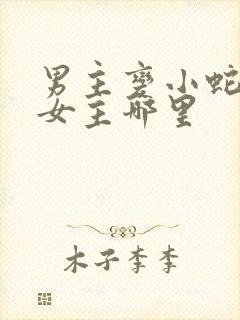 男主变小蛇
女主哪里
木子李李